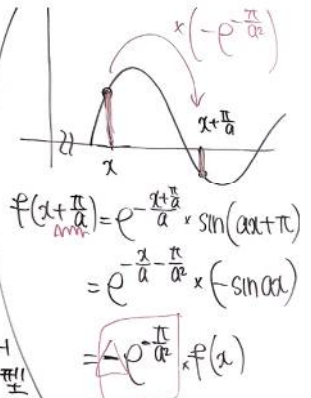 ×(-e^{-\frac{π}{a²}})
x+\frac{π}{a}
x
f(x+\frac{π}{a})=e^{-\frac{x+\frac{π}{a}}{a}}×sin(ax+π)
=e^{-\frac{x}{a}-\frac{π}{a²}}×(-sinax)
=-e^{-\frac{π}{a²}}×f(x)